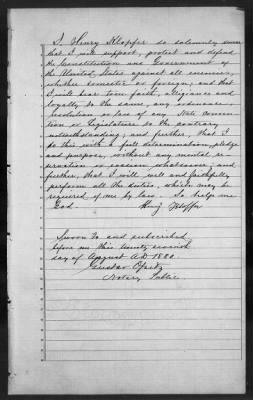 I, Henry Klopfer do solemnly swear
that I will support, protect and defend
the Constitution and Government of
the United States against all enemies,
whether domestic or foreign, and that
I will bear true faith, allegiance and
loyalty to the same, any ordinance,
resolution or law of any State conven-
tion or Legislature to the contrary
notwithstanding, and further, that I
do this with a full determination, pledge
and purpose, without any mental re-
servation or evasion whatsoever; and
further, that I will well and faithfully
perform all the duties, which may be
required of me by law. So help me
God.
Sworn to and subscribed
before me this twenty seventh
day of August A.D. 1880.
Gustav
Notary Public